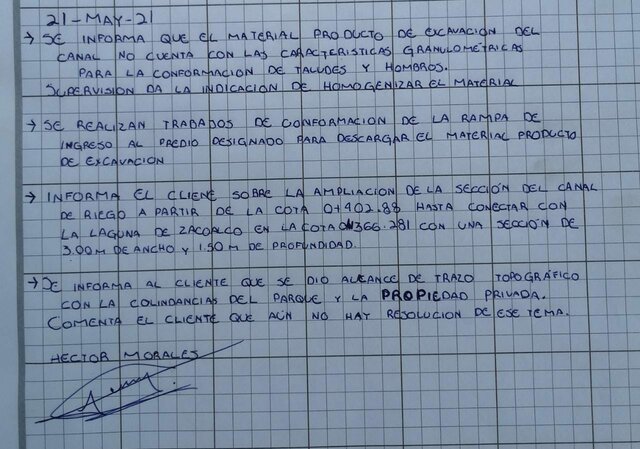 21-MAY-21
→ SE INFORMA QUE EL MATERIAL PRODUCTO DE EXCAVACION DEL
CANAL NO CUENTA CON LAS CARACTERISTICAS GRANULOMÉTRICAS
PARA LA CONFORMACION DE TALUDES Y HOMBROS.
SUPERVISION DA LA INDICACION DE HOMOGENIZAR EL MATERIAL
→ SE REALIZAN TRABADOS DE CONFORMACION DE LA RAMPA DE
INGRESO AL PREDIO DESIGNADO PARA DESCARGAR EL MATERIAL PRODUCTO
DE EXCAVACION
→ INFORMA EL CLIENE SOBRE LA AMPLIACION DE LA SECCIÓN DEL CANAL
DE RIEGO A PARTIR DE LA COTA 0+402.88 HASTA CONECTAR CON
LA LAGUNA DE ZACOALCO EN LA COTA 366.281 CON UNA SECCIÓN DE
3.00 M DE ANCHO Y 1.50 M DE PROFUNDIDAD.
→ SE INFORMA AL CLIENTE QUE SE DIO ALCANCE DE TRAZO TOPOGRÁFICO
CON LA COLINDANCIAS DEL PARQUE Y LA PROPIEDAD PRIVADA.
COMENTA EL CLIENTE QUE AÚN NO HAY RESOLUCION DE ESE TEMA.
HECTOR MORALES